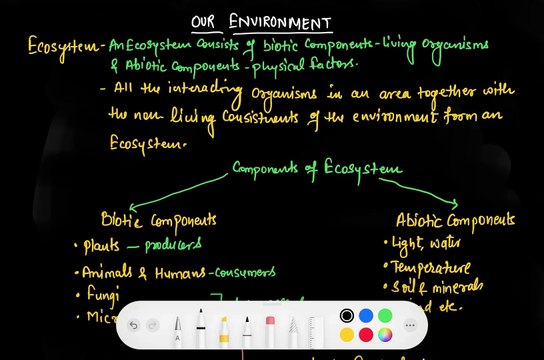 OUR ENVIRONMENT
Ecosystem - An Ecosystem consists of biotic components - living organisms
& Abiotic components - physical factors.
- All the interacting organisms in an area together with
the non-living consistuents of the environment form an
Ecosystem.
Components of Ecosystem
Biotic Components
• Plants - producers
• Animals & Humans - consumers
• Fungi
• Micr
Abiotic Components
• Light, water
• Temperature
• Soil & minerals
etc.
A